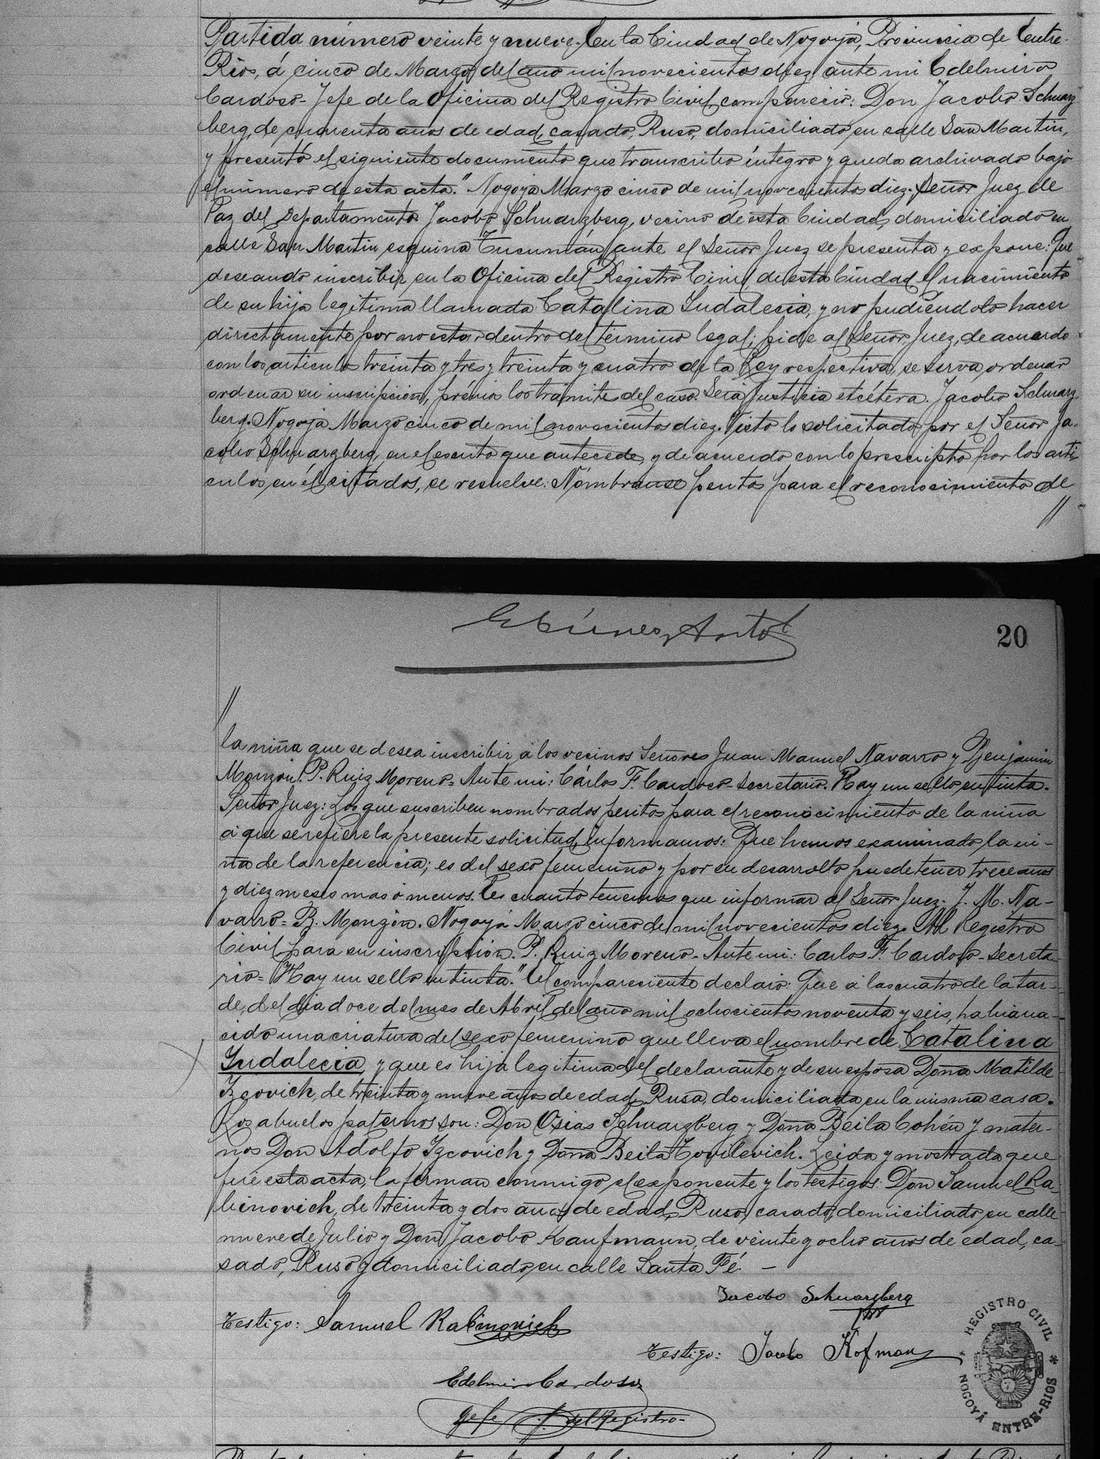 Partida número veinte y nueve. En la Ciudad de Nogoyá, Provincia de Entre-
Rios, á cinco de Marzo del año mil novecientos diez, ante mi Edelmiro
Cardoso- Jefe de la Oficina del Registro Civil, compareció: Don Jacobo Schuarz
berg, de cuarenta años de edad, casado, Ruso, domiciliado, en calle San Martin,
y presentó el siguiente documento que transcribo íntegro y queda archivado bajo
el número de esta acta." Nogoyá Marzo cinco de mil novecientos diez. Señor Juez de
Paz del Departamento Jacobo Schuarzberg, vecino de esta Ciudad, domiciliado en
calle San Martin, esquina Tucumán, ante el Señor Juez se presenta y expone: Que
deseando inscribir, en la Oficina del Registro Civil de esta Ciudad el nacimiento
de su hija legítima llamada Catalina Indalecia, y no pudiéndolo hacer
directamente por no estar dentro del término legal, pide al Señor Juez, de acuerdo
con los artículos treinta y tres y treinta y cuatro de la Ley respectiva, se serva, ordenar
ordenar su inscripcion, prévio los tramite del caso. Será Justicia etcétera. Jacobo Schuarz
berg. Nogoyá Marzo cinco de mil novecientos diez. Visto lo solicitado por el Señor Ja-
cobo Schuarzberg, en el escrito que antecede, y de acuerdo con lo prescripto por los artí
culos, en él citados, se resuelve: Nómbranse peritos para el reconocimiento de
//
20
//
la niña que se desea inscribir, á los vecinos Señores Juan Manuel Navarro y Benjamin
Monzón. P. Ruiz Moreno- Ante mi: Cárlos F. Cardoso- Secretario. Hay un sello en tinta.-
Señor Juez: Los que suscriben nombrados peritos para el reconocimiento de la niña
á que se refiere la presente solicitud, informamos: Que hemos examinado la ni-
ña de la referencia; es del sexo femenino y por su desarrollo puede tener trece años
y diez meses mas ó menos. Es cuanto tenemos que informar al Señor Juez. J. M. Na-
varro- B. Monzón. Nogoyá Marzo cinco de mil novecientos diez. Al Registro
Civil para su inscripción. P. Ruiz Moreno- Ante mi: Carlos F. Cardoso- Secreta-
rio- Hay un sello en tinta." El compareciente declaró: Que á las cuatro de la tar-
de, del dia doce del mes de Abril del año mil ochocientos noventa y seis, habia na-
cido una criatura del sexo femenino que lleva el nombre de Catalina
Indalecia, y que es hija legítima del declarante y de su esposa Doña Matilde
Izcovich, de treinta y nueve años de edad, Rusa, domiciliada en la misma casa.-
Los abuelos paternos son: Don Osias Schuarzberg y Doña Beila Cohén y mater-
nos Don Adolfo Izcovich y Doña Beila. Leida y mostrada que
fué esta acta, la firman conmigo el exponente y los testigos: Don Samuel Ra-
binovich, de treinta y dos años de edad, Ruso, casado, domiciliado, en calle
nueve de Julio y Don Jacobo Kaufmann, de veinte y ocho años de edad, ca-
sado, Ruso y domiciliado, en calle Santa Fé. -
Jacobo Schuarzberg
Testigo: Samuel Rabinovich
Testigo: Jacobo Kofman
Edelmiro Cardoso
Jefe del Registro-
REGISTRO CIVIL
NOGOYÁ ENTRE-RIOS